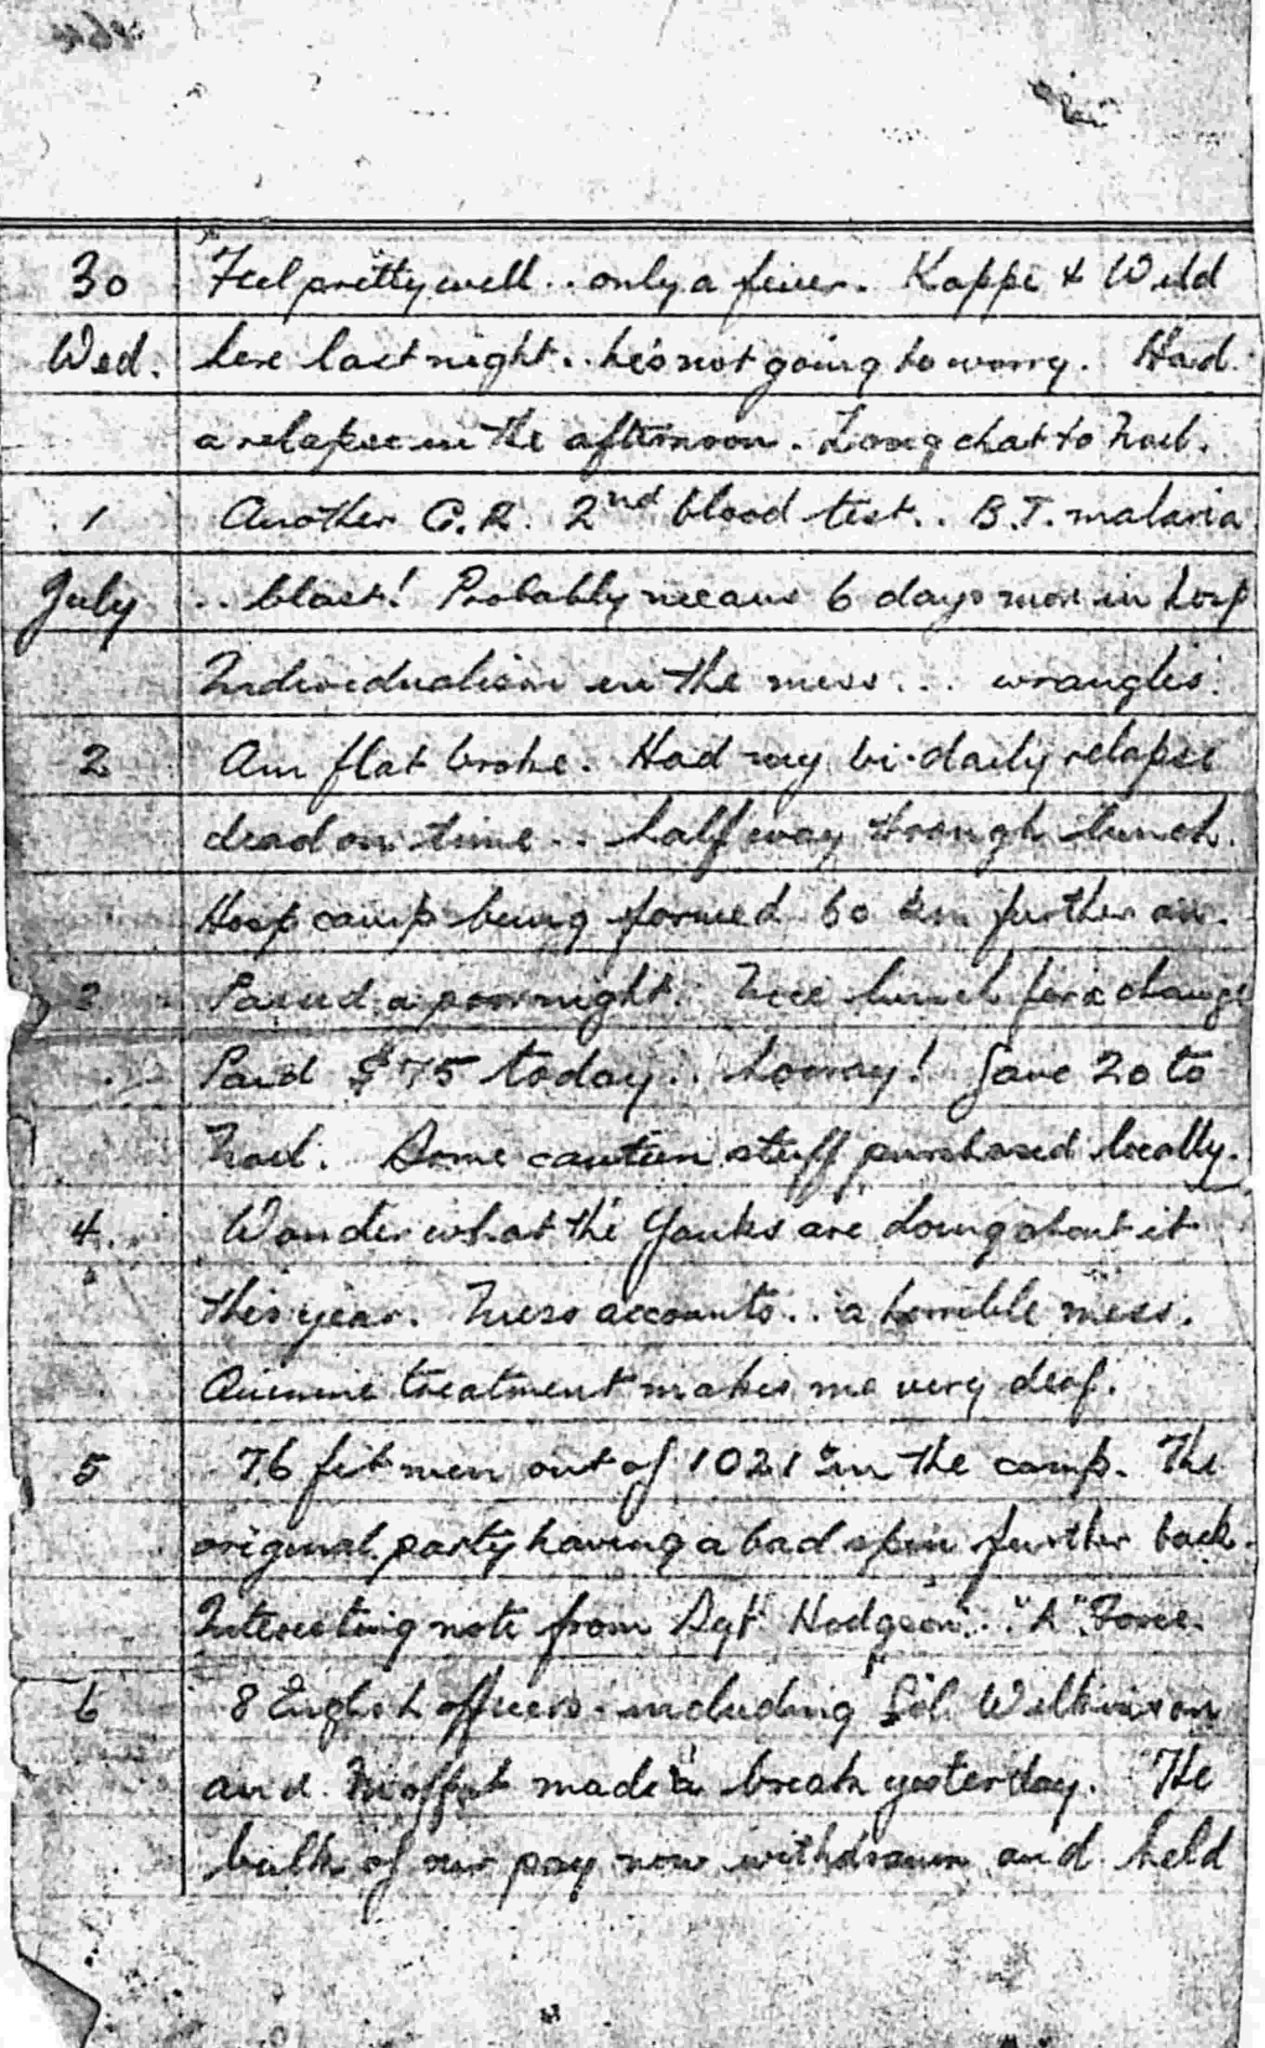 30 Feel pretty well.. only a fever. Kappe & Wild
Wed. here last night.. he's not going to worry. Had
a relapse in the afternoon. Long chat to
1 Another C.R. 2nd blood test.. B.T. malaria
July .. blast! Probably means 6 days more in hosp
Individualism in the mess... wrangles.
2 Am flat broke. Had my bi-daily relapse
dead on time.. half way through lunch.
Hosp camp being formed 60 km further on.
3 a poor night. Nice lunch for a change
Paid $75 today.. hooray! Gave 20 to
Some canteen stuff purchased locally.
4. Wonder what the Yanks are doing about it
this year. Mess accounts.. a horrible mess.
Quinine treatment makes me very deaf.
5 76 fit men out of 1021 in the camp. The
original party having a bad spin further back.
Interesting note from Sgt Hodgson... "A" Force.
6 8 English officers including Wilkinson
and Moffat made a break yesterday. The
bulk of our pay now withdrawn and held